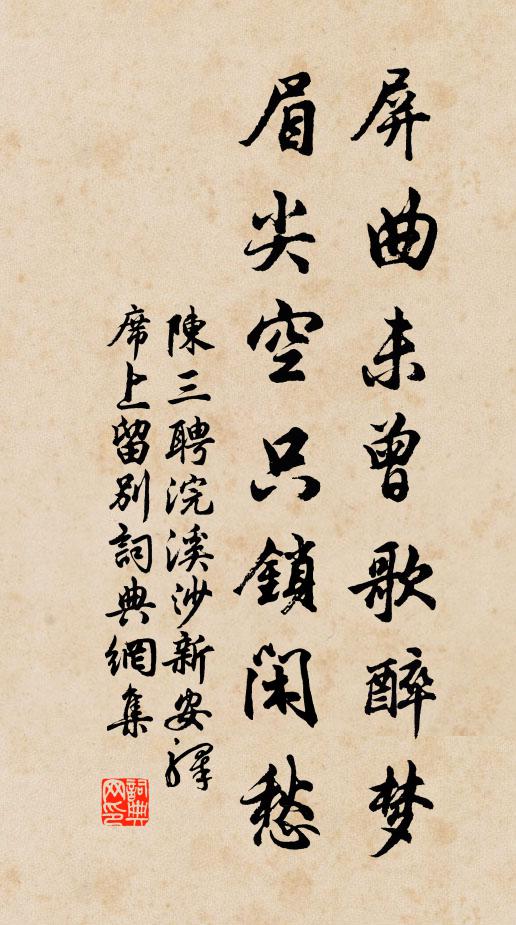 屏曲未曾歌醉梦
眉尖空只鎖閑愁
陳三聘浣溪沙新安驛
席上留别詞典網集
詞典网印